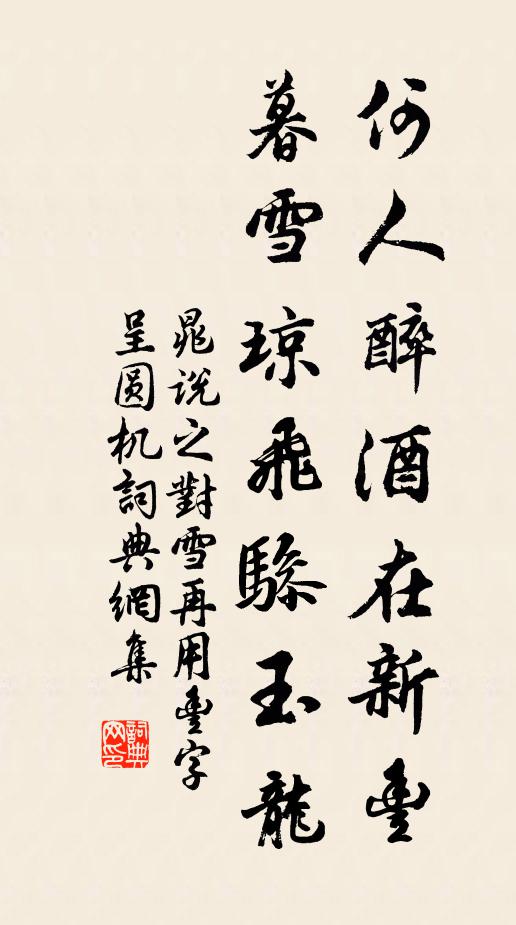 何人醉酒在新豊
暮雪琼飛驂玉龍
晁说之對雪再用豊字
呈圆机詞典網集
詞典網印